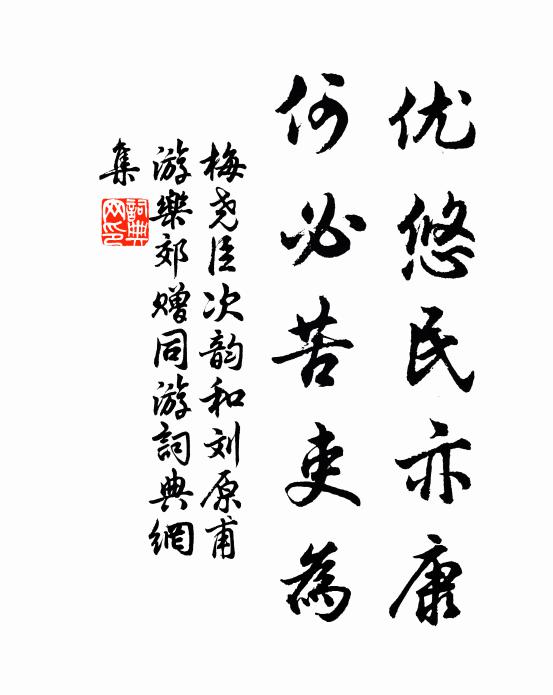 优悠民亦康
何必苦吏為
梅尧臣次韵和刘原甫
游樂郊赠同游詞典網
集
詞典网印